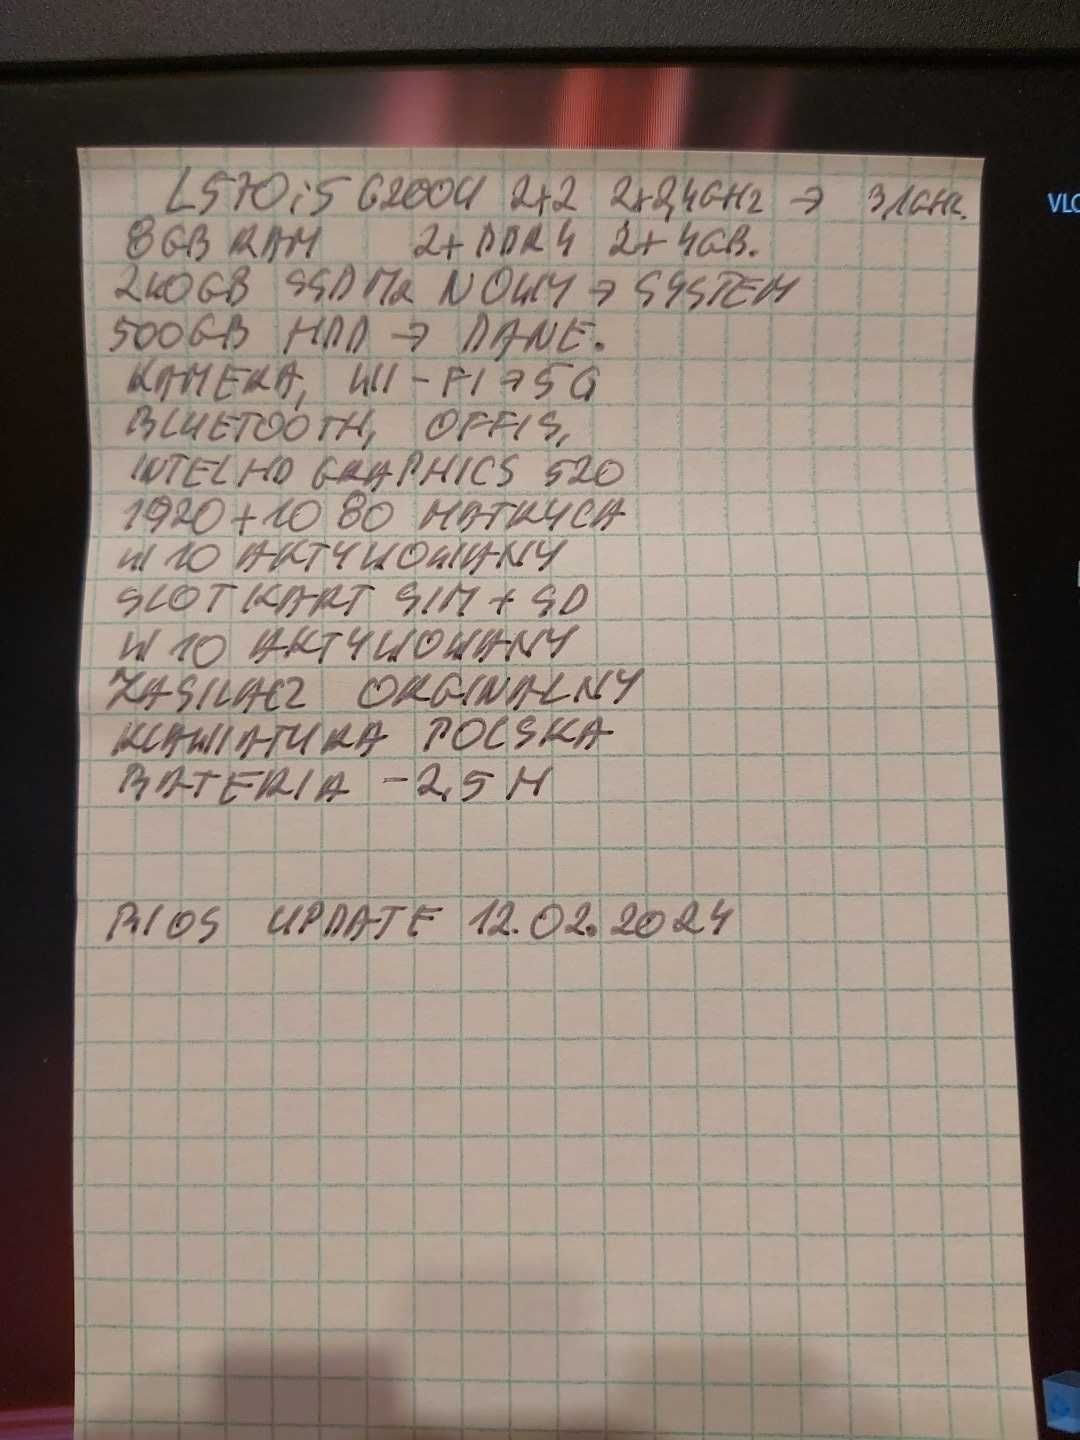 L570 i5 6200U 2+2 2+2,4GHz → 3,1GHz.
8GB RAM 2+DDR4 2+4GB.
240GB SSD M2 NOWY → SYSTEM
500GB HDD → DANE.
KAMERA, WI-FI → 5G
BLUETOOTH, OFFIS,
INTEL HD GRAPHICS 520
1920+1080 MATRYCA
W10 AKTYWOWANY
SLOT KART SIM + SD
W10 AKTYWOWANY
ZASILACZ ORGINALNY
KLAWIATURA POLSKA
BATERIA - 2,5H
BIOS UPDATE 12.02.2024
VLC